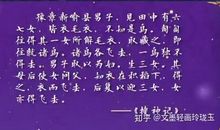 豫章新喻县男子，见田中有六
七女，皆衣毛衣，不知是鸟。匍匐
往得其一女所解毛衣，取藏之，即
往就诸鸟。诸鸟各飞去，一鸟独不
得去。男子取以为妇。生三女。其
母后使女问父，知衣在积稻下，得
之，衣而飞去，后复以迎三女，女
亦得飞去。
——《搜神记》
知乎 @文墨轻画玲珑玉